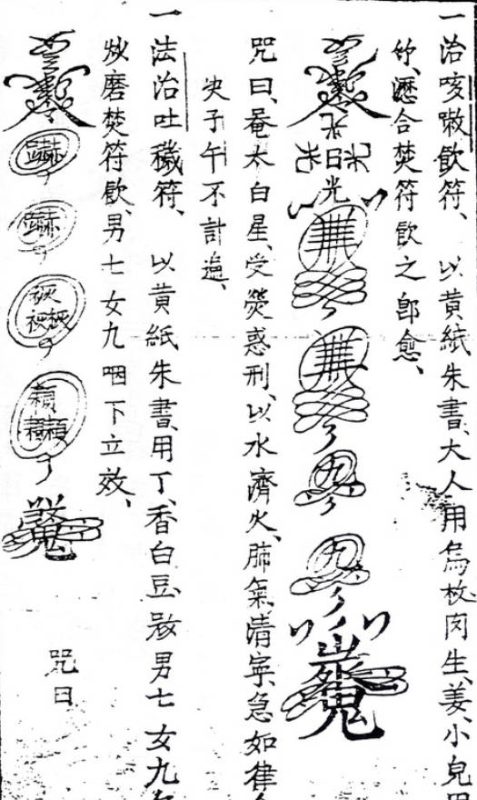 一治咳嗽飲符、以黄紙朱書、大人用烏枚肉生、姜、小兒用
竹、瀝合焚符飲之即愈、
日光
咒曰、菴太白星、受熒惑刑、以水濟火、肺氣清寧、急如律
決子午不計遍、
一法治吐穢符、以黄紙朱書、用丁、香白豆、蔲男七女九
炒磨焚符飲、男七女九咽下立效、
咒曰